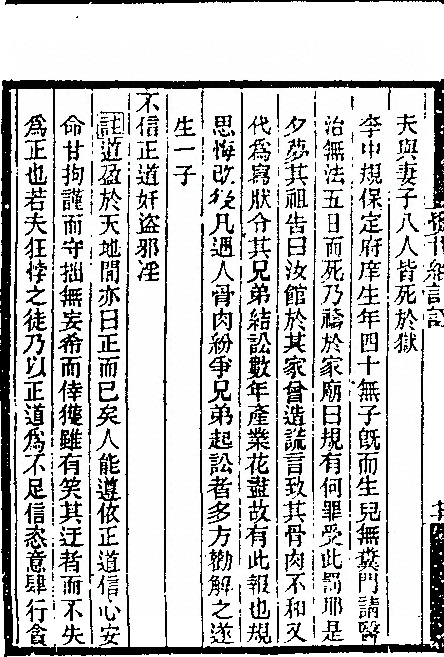 夫與妻子八人皆死於獄
李中規保定府庠生年四十無子旣而生兒無糞門請醫
治無法五日而死乃禱於家廟曰規有何罪受此罰耶是
夕夢其祖告曰汝館於其家曾造謊言致其骨肉不和又
代為寫狀令其兄弟結訟數年產業花盡故有此報也規
思悔改後凡遇人骨肉紛爭兄弟起訟者多方勸解之遂
生一子
不信正道奸盜邪淫
註道盈於天地間亦曰正而已矣人能遵依正道信心安
命甘拘謹而守拙無妄希而倖獲雖有笑其迂者而不失
為正也若夫狂悖之徒乃以正道為不足信恣意肆行貪